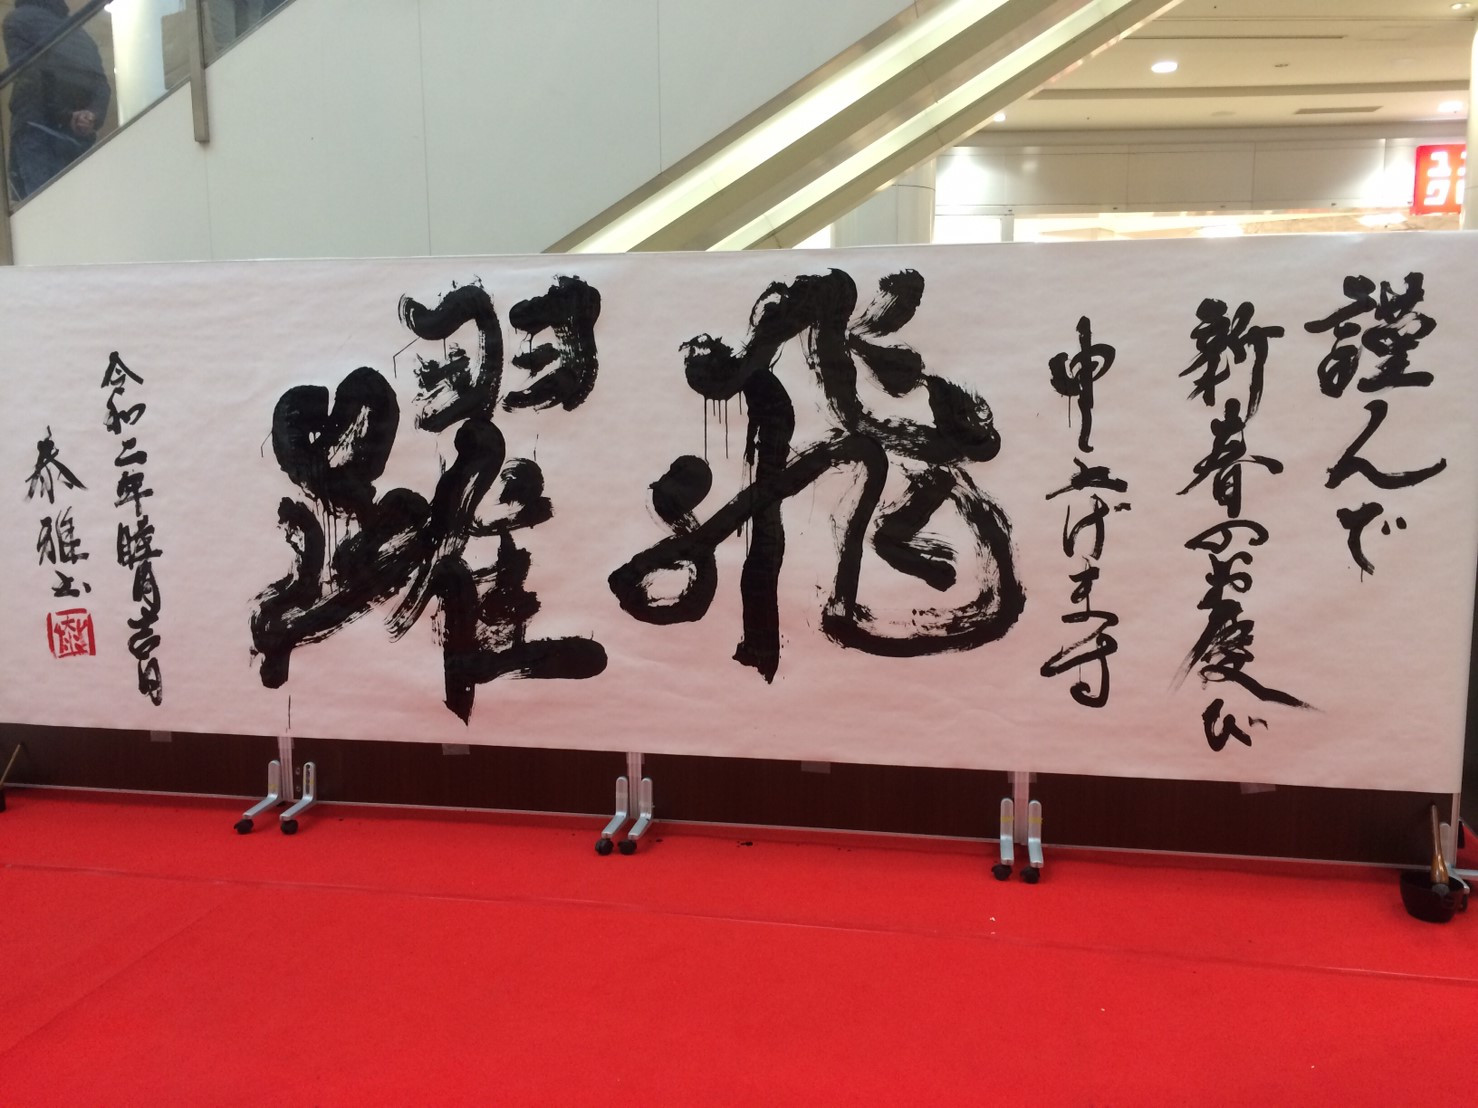 謹んで
新春のお慶び
申し上げます
飛躍
令和二年睦月吉日
泰雅書
ユニ
クロ